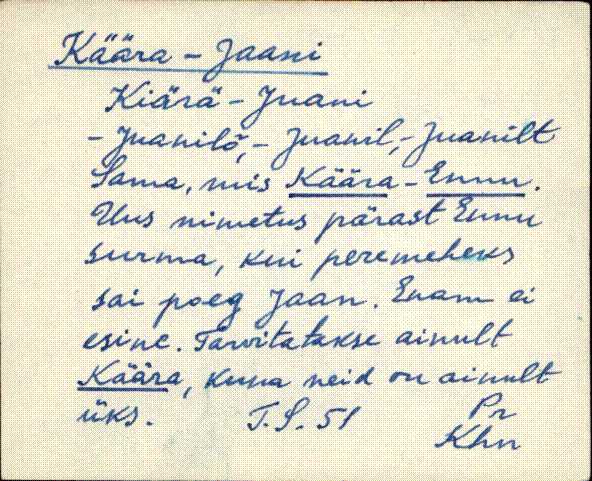 Käära - Jaani
Kiärä - Juani
- Juanilõ, - Juanil, - Juanilt
Sama, mis Käära - Ennu.
Uus nimetus pärast Ennu
surma, kui peremeheks
sai poeg Jaan. Enam ei
esine. Tarvitatakse ainult
Käära, kuna neid on ainult
üks. T. S. 51 Pr
Khn